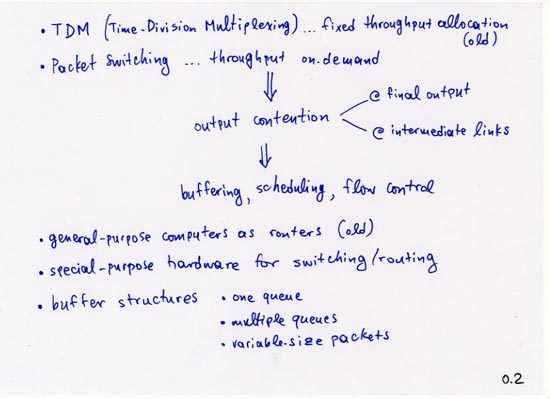 • TDM (Time-Division Multiplexing) ... fixed throughput allocation
(old)
• Packet Switching ... throughput on-demand
output contention
@ final output
@ intermediate links
buffering, scheduling, flow control
• general-purpose computers as routers (old)
• special-purpose hardware for switching/routing
• buffer structures • one queue
• multiple queues
• variable-size packets
0.2